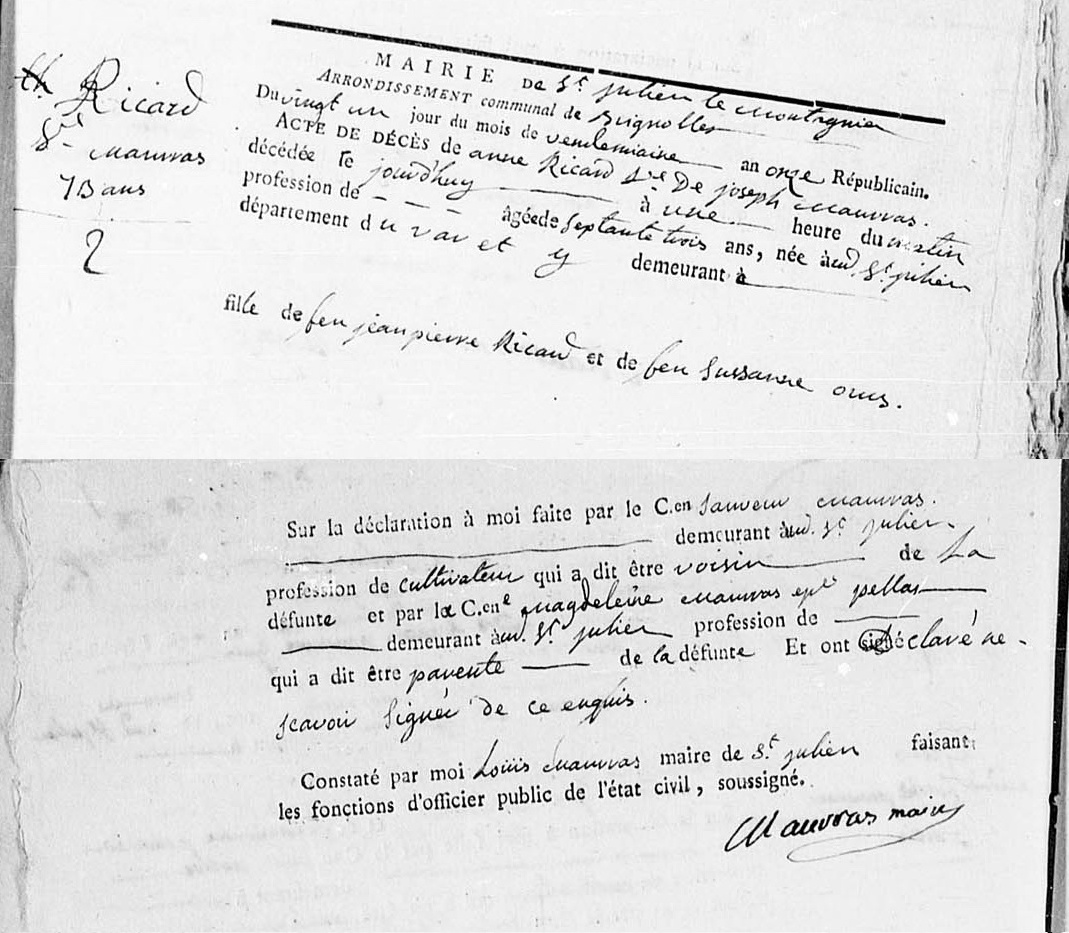 Ricard
Vve
Mauvras
73 ans
2
MAIRIE DE St julien le Montagnier
ARRONDISSEMENT communal de Brignolles
Du vingt un jour du mois de vendemiaire an onze Républicain.
ACTE DE DÉCÈS de anne Ricard Vve De joseph Mauvras.
décédée le jourdhuy à une heure du matin
profession de âgée de septante trois ans, née àud. St julien
département du var et y demeurant à
fille de feu jeanpierre Ricard et de feu Sussanne
Sur la déclaration à moi faite par le C.en Sauveur Mauvras.
demeurant àud. St julien
profession de cultivateur qui a dit être voisin de La
défunte et par la C.ene Magdeleine Mauvras epse pellas
demeurant àud. St julien profession de
qui a dit être parente de la défunte Et ont déclaré ne
scavoir Signer de ce enquis.
Constaté par moi Louis Mauvras maire de St julien faisant
les fonctions d'officier public de l'état civil, soussigné.
Mauvras maire